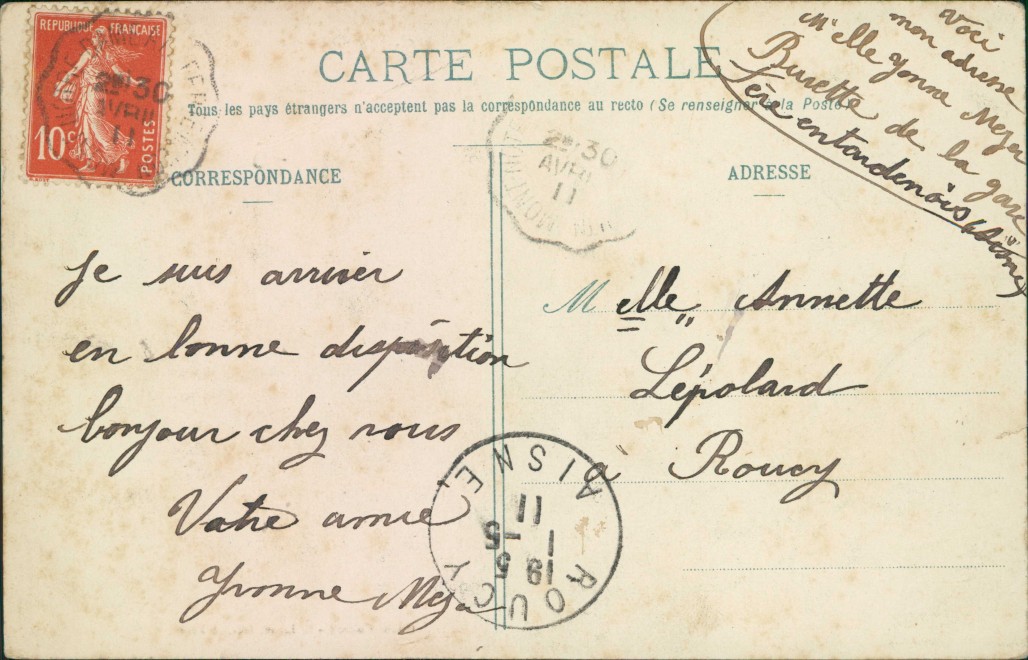 REPUBLIQUE FRANÇAISE
10c
POSTES
2e 30
AVRIL
11
CARTE POSTALE
Tous les pays étrangers n'acceptent pas la correspondance au recto (Se renseigner à la Poste)
Voici
mon adresse
Melle Yvonne Meyer
Buvette de la gare
fère entardenois (Aisne)
2e 30
AVRIL
11
CORRESPONDANCE
ADRESSE
Je suis arriver
en bonne disposition
bonjour chez vous
Votre amie
Yvonne Meyer
Melle Annette
Lépolard
a Roucy
ROUCY
AISNE
19 5
1 - 5
11